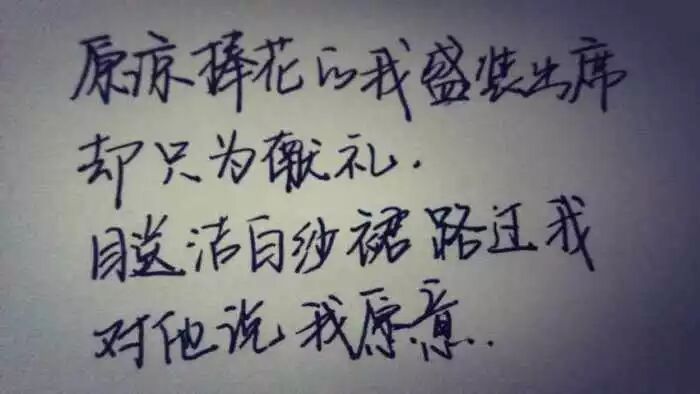 原谅捧花的我盛装出席
却只为献礼.
目送洁白纱裙路过我
对他说我愿意..